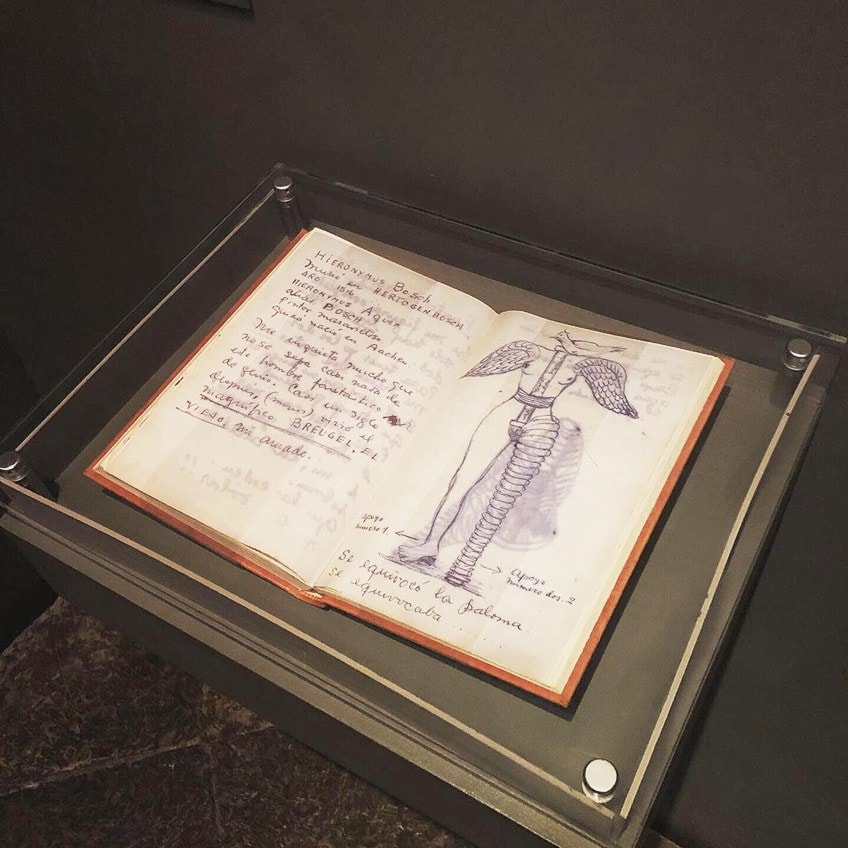 HIERONYMUS BOSCH
murió en HERTOGENBOSCH
AÑO 1516
HIERONYMUS AQUEN
alias BOSCH
Pintor maravilloso.
Quizá nació en Aachen
Me inquieta mucho que
no se sepa casi nada de
este hombre fantástico
de genio. Casi un siglo
después, (menos) vivió el
magnífico BREUGEL, EL
VIEJO, mi amado.
apoyo
número 1.
apoyo
número dos. 2
Se equivocó la paloma.
se equivocaba ...